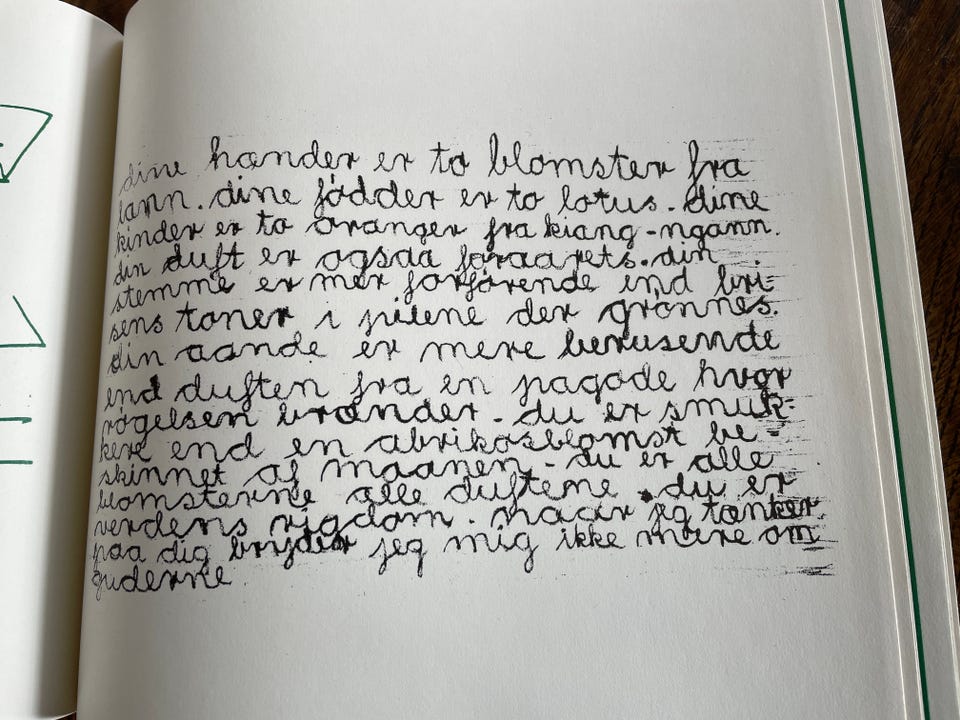 dine hænder er to blomster fra
lann. dine fødder er to lotus. dine
kinder er to oranger fra kiang-ngann.
din duft er ogsaa foraarets. din
stemme er mer forførende end bri-
sens toner i pilene der grønnes.
din aande er mere berusende
end duften fra en pagode hvor
røgelsen brænder. du er smuk-
kere end en abrikosblomst be-
skinnet af maanen. du er alle
blomsterne alle duftene. du er
verdens rigdom. naar jeg tænker
paa dig bryder jeg mig ikke mere om
guderne